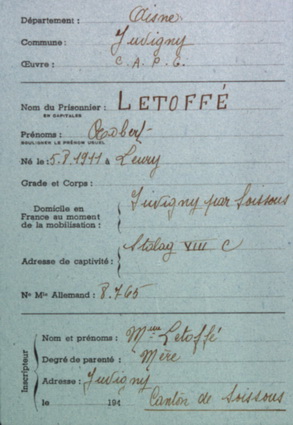 Département : Aisne
Commune : Juvigny
Œuvre : C. A. P. G.
Nom du Prisonnier : LETOFFÉ
EN CAPITALES
Prénoms : Robert
SOULIGNER LE PRÉNOM USUEL
Né le : 5.8.1911 à Leury
Grade et Corps :
Domicile en Juvigny par Soissons
France au moment
de la mobilisation :
Stalag XIII C
Adresse de captivité :
No Mle Allemand : 8.765
Inscripteur
Nom et prénoms : Mme Letoffé
Degré de parenté : Mère
Adresse : Juvigny
le 194 Canton de Soissons